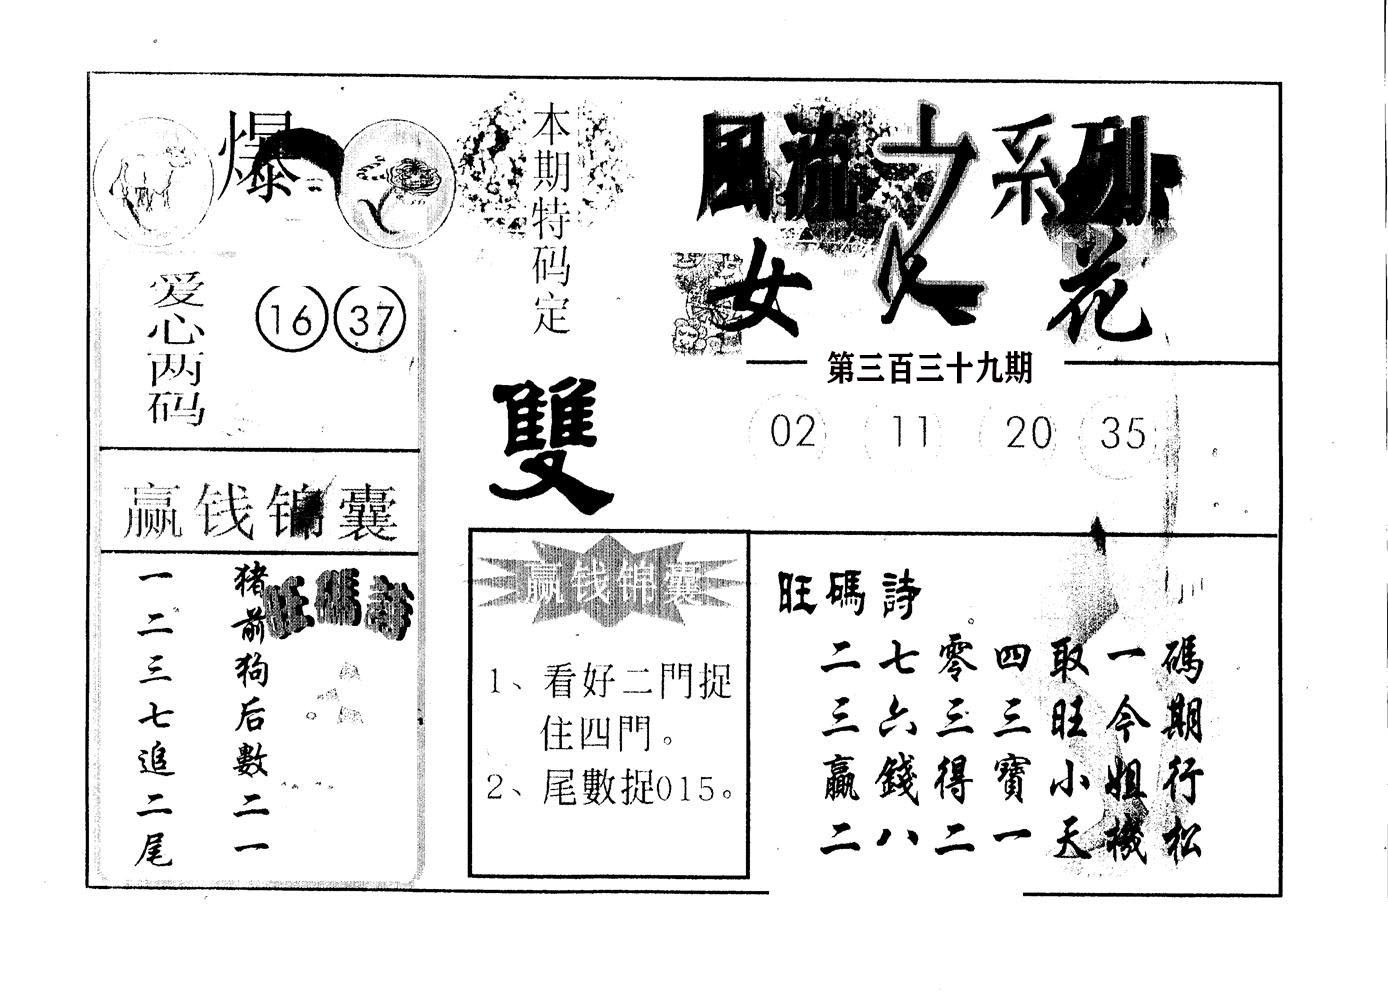 爆
本期特码定
雙
風流之系列
女人花
第三百三十九期
02 11 20 35
爱心两码
16 37
赢钱锦囊
旺碼詩
猪前狗后數二一
一二三七追二尾
赢钱锦囊
1、看好二門捉
住四門。
2、尾數捉015。
旺碼詩
二七零四取一碼
三六三三旺今期
贏錢得寶小姐行
二八二一天機松